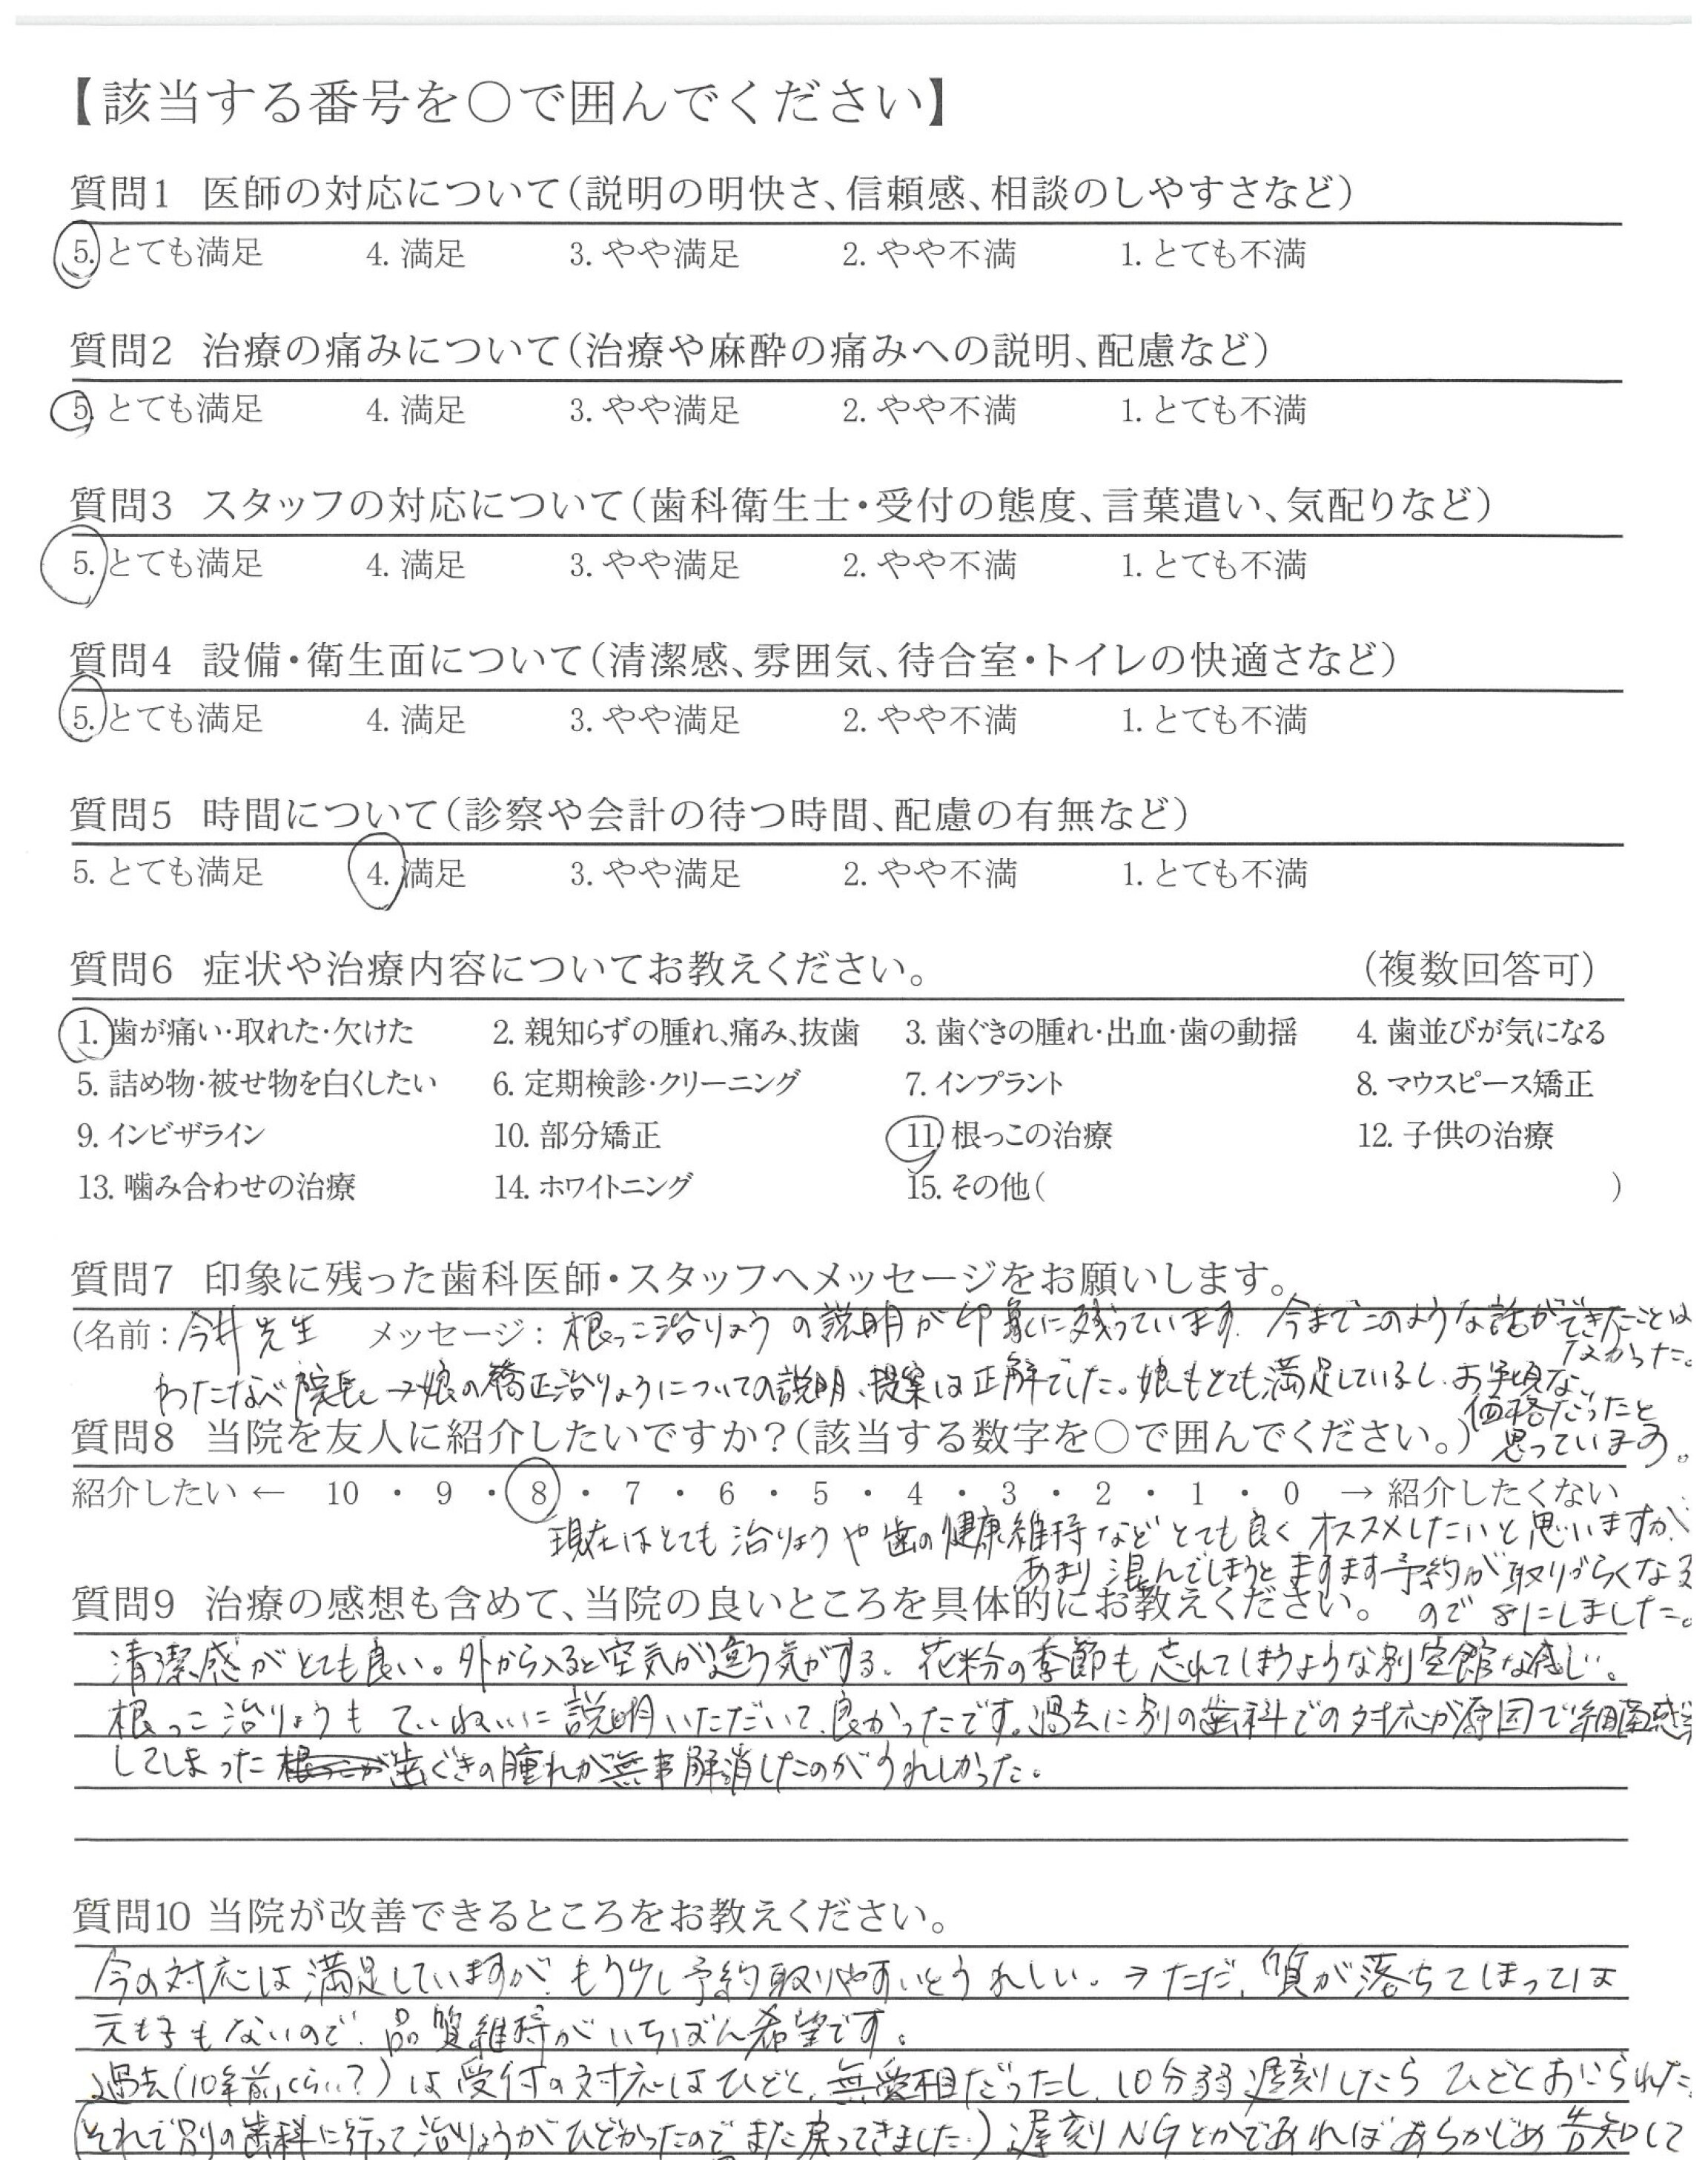 【該当する番号を○で囲んでください】
質問1 医師の対応について(説明の明快さ、信頼感、相談のしやすさなど)
5. とても満足 4. 満足 3. やや満足 2. やや不満 1. とても不満
質問2 治療の痛みについて(治療や麻酔の痛みへの説明、配慮など)
5. とても満足 4. 満足 3. やや満足 2. やや不満 1. とても不満
質問3 スタッフの対応について(歯科衛生士・受付の態度、言葉遣い、気配りなど)
5. とても満足 4. 満足 3. やや満足 2. やや不満 1. とても不満
質問4 設備・衛生面について(清潔感、雰囲気、待合室・トイレの快適さなど)
5. とても満足 4. 満足 3. やや満足 2. やや不満 1. とても不満
質問5 時間について(診察や会計の待つ時間、配慮の有無など)
5. とても満足 4. 満足 3. やや満足 2. やや不満 1. とても不満
質問6 症状や治療内容についてお教えください。 (複数回答可)
1. 歯が痛い・取れた・欠けた 2. 親知らずの腫れ、痛み、抜歯 3. 歯ぐきの腫れ・出血・歯の動揺 4. 歯並びが気になる
5. 詰め物・被せ物を白くしたい 6. 定期検診・クリーニング 7. インプラント 8. マウスピース矯正
9. インビザライン 10. 部分矯正 11. 根っこの治療 12. 子供の治療
13. 噛み合わせの治療 14. ホワイトニング 15. その他( )
質問7 印象に残った歯科医師・スタッフへメッセージをお願いします。
(名前：今井先生 メッセージ：根っこ治りょうの説明が印象に残っています。今までこのような話ができたことは
なかった。
わたなべ院長→娘の矯正治りょうについての説明、提案は正解でした。娘もとても満足しているし、お手頃な
価格だったと
思っています。
質問8 当院を友人に紹介したいですか？(該当する数字を○で囲んでください。)
紹介したい ← 10 ・ 9 ・ 8 ・ 7 ・ 6 ・ 5 ・ 4 ・ 3 ・ 2 ・ 1 ・ 0 → 紹介したくない
現在はとても治りょうや歯の健康維持などとても良くオススメしたいと思いますが、
あまり混んでしまうとますます予約が取りづらくなる
ので8にしました。
質問9 治療の感想も含めて、当院の良いところを具体的にお教えください。
清潔感がとても良い。外から入ると空気が違う気がする。花粉の季節も忘れてしまうような別空館な感じ。
根っこ治りょうもていねいに説明いただいて、良かったです。過去に別の歯科での対応が原因で細菌感染
してしまった歯ぐきの腫れが無事解消したのがうれしかった。
質問10 当院が改善できるところをお教えください。
今の対応は満足していますが、もう少し予約取りやすいとうれしい。→ただ、質が落ちてしまっては
元も子もないので、品質維持がいちばん希望です。
過去(10年前くらい？)は受付の対応はひどく、無愛相だったし、10分弱遅刻したらひどくおこられた。
(それで別の歯科に行って治りょうがひどかったのでまた戻ってきました。)遅刻NGとかであればあらかじめ告知して